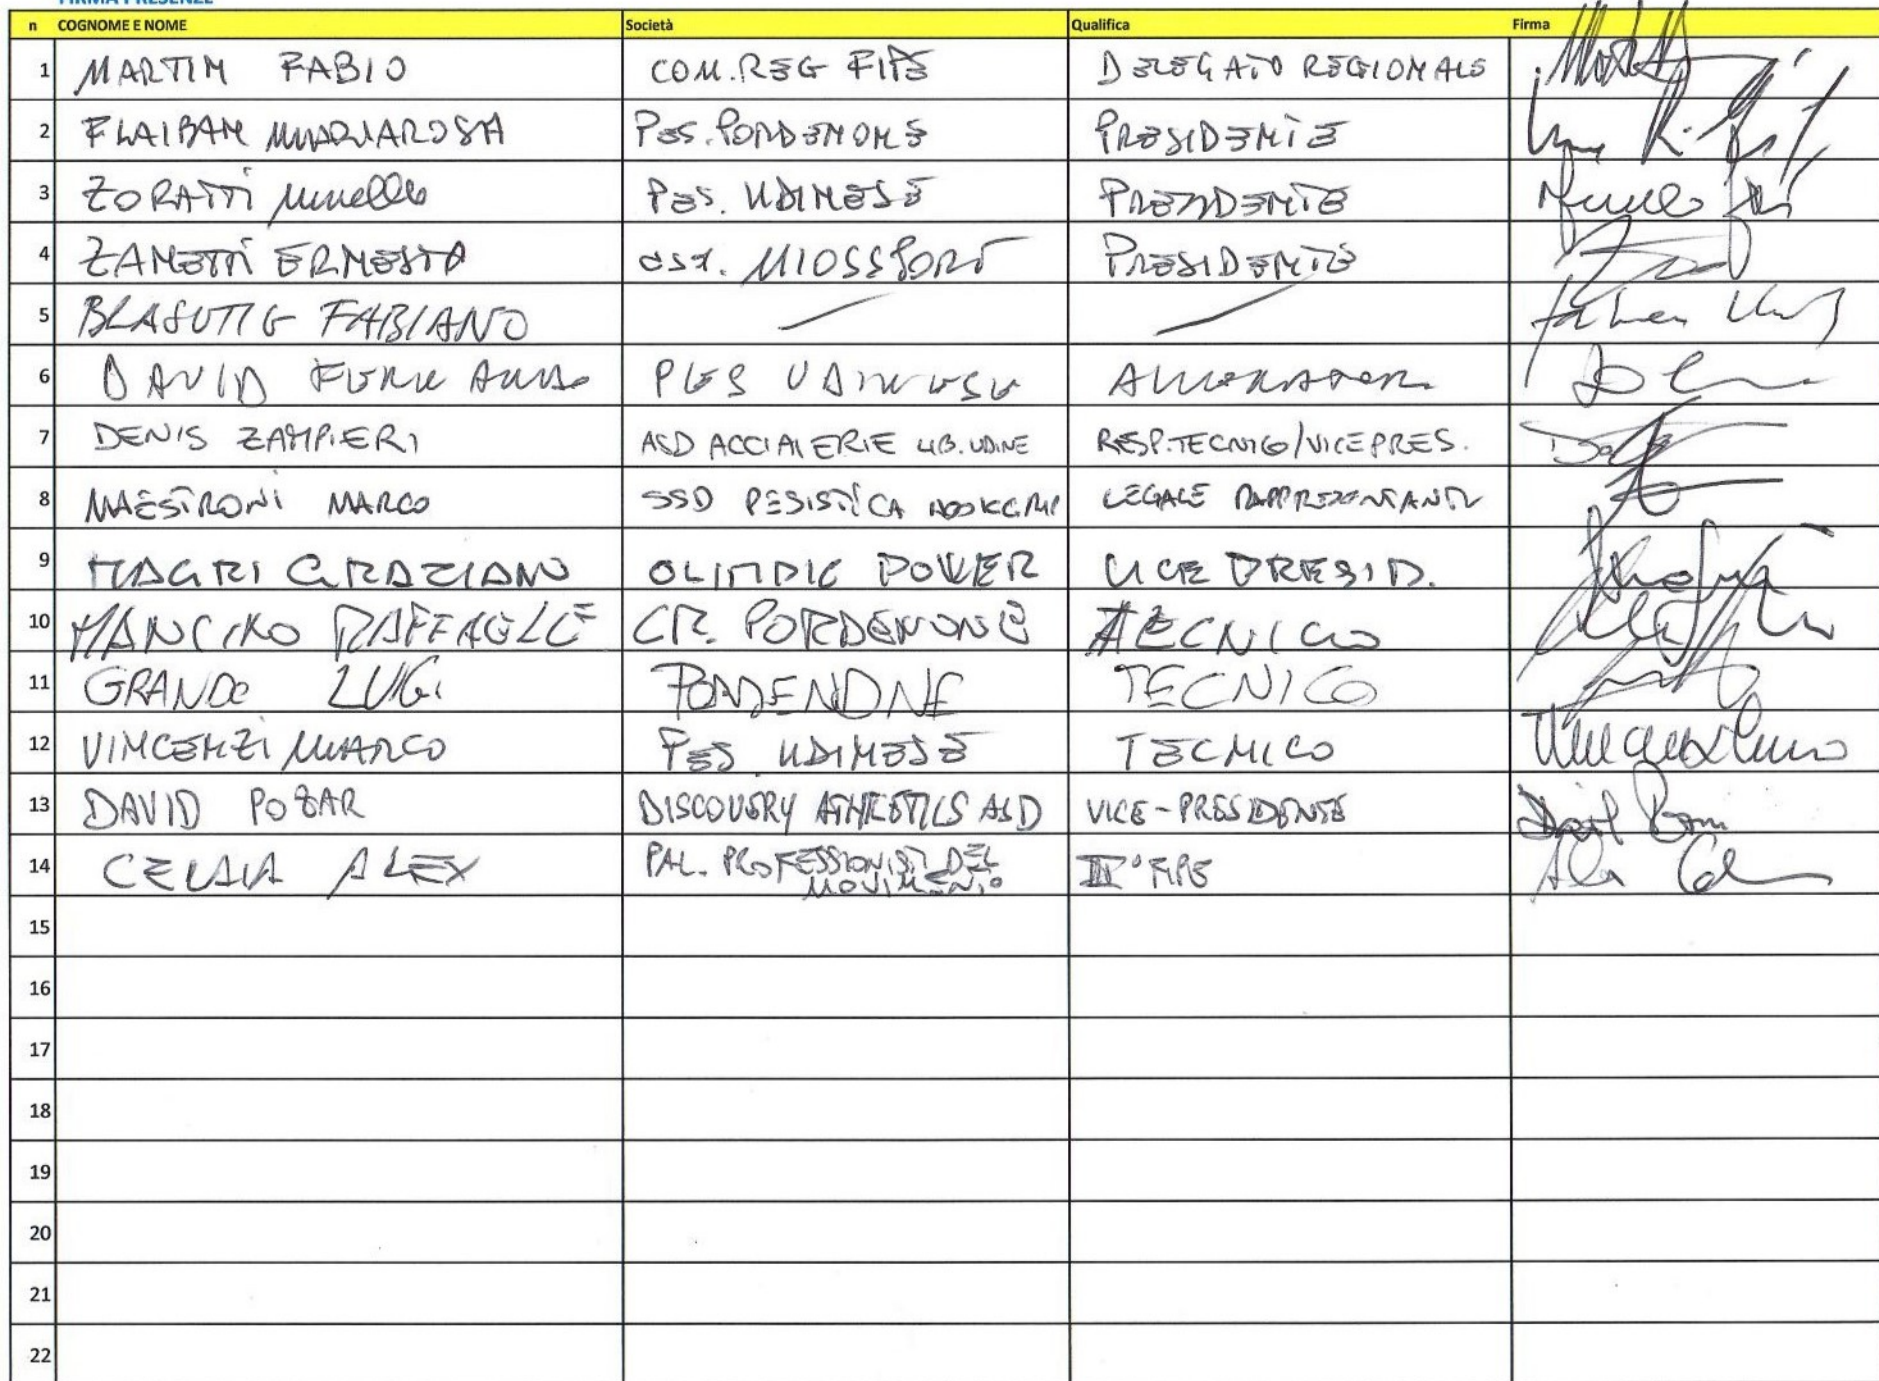 FIRMA PRESENZE
n COGNOME E NOME Società Qualifica Firma
1 MARTIN FABIO COM.REG FIPE DELEGATO REGIONALE
2 FLAIBAN MARIAROSA PES. PORDENONE PRESIDENTE
3 ZORATTI Minello PES. UDINESE PRESIDENTE
4 ZANETTI ERNESTO ass. MIOSSPORT PRESIDENTE
5 BLASUTIG FABIANO
6 DAVID PES UDINESE
7 DENIS ZAMPIERI ASD ACCIAIERIE LIB. UDINE RESP.TECNICO/VICEPRES.
8 MAESTRONI MARCO SSD PESISTICA LEGALE RAPPRESENTANTE
9 MAGRI GRAZIANO OLIMPIC POWER VICE PRESID.
10 MANCINO RAFFAELE CR. PORDENONE TECNICO
11 GRANDO LUIGI PORDENONE TECNICO
12 VINCENZI MARCO PES UDINESE TECNICO
13 DAVID POZAR DISCOVERY ATHLETICS ASD VICE-PRESIDENTE
14 CELAIA ALEX PAL. PROFESSIONISTI DEL III° FIPE
MOVIMENTO
15
16
17
18
19
20
21
22